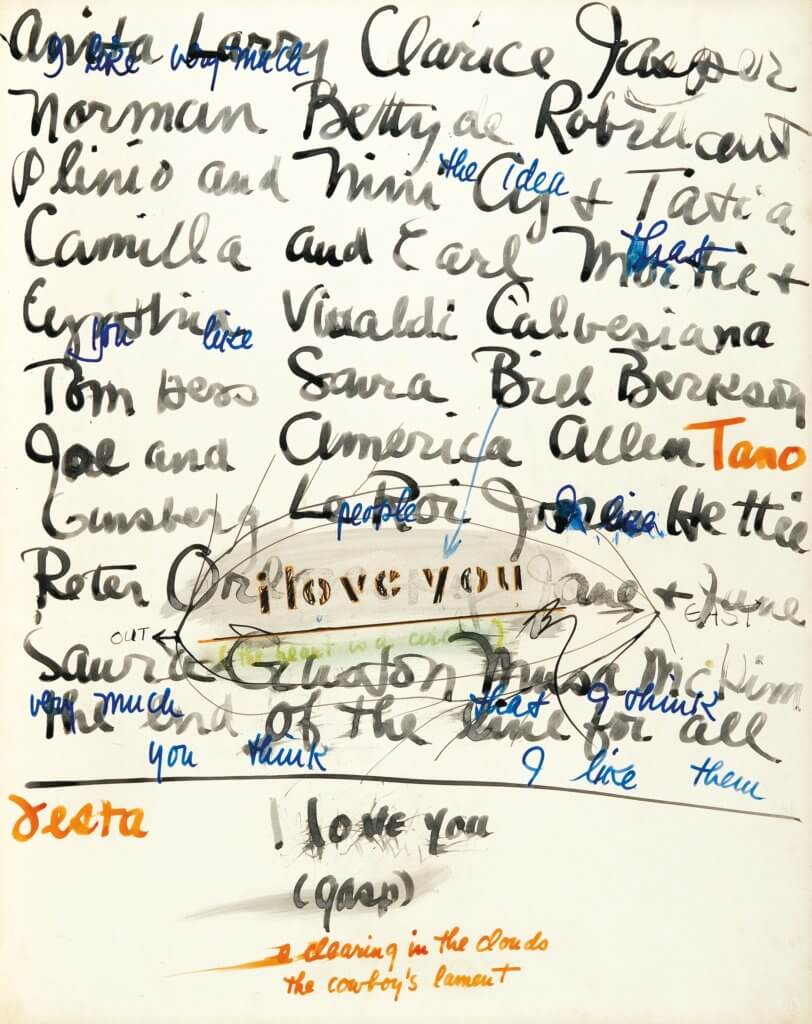 Anita Larry Clarice Jasper
I like very much
Norman Betty de Robilant
Plinio and Mimi Cy + Tatia
the idea
Camilla and Earl Mortie +
that
Cynthia Vivaldi Calvesiana
you like
Tom Hess Saura Bill Berkson
Joe and America Allen Tano
Ginsberg LeRoi Jones Hettie
people
Peter Jane + June
i love you
OUT EAST
the heart is a
B
Saura Guston Musa McKim
very much that I think
the end of the line for all
you think I like them
Festa
I love you
(gasp)
a clearing in the clouds
the cowboy's lament